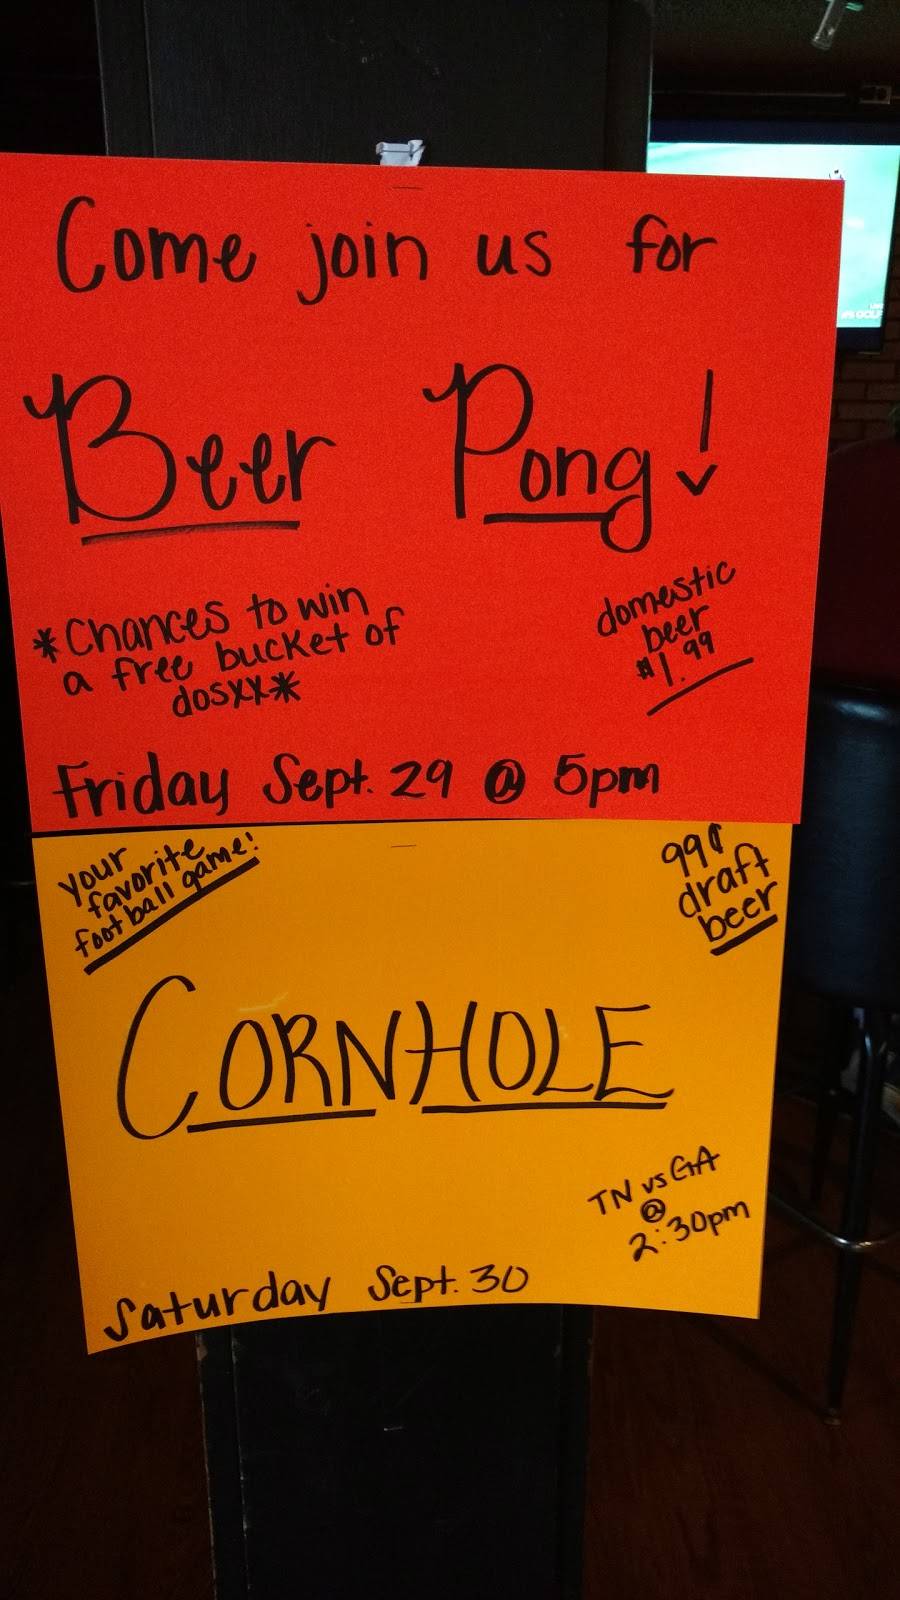 Come join us for
Beer Pong!
*Chances to win
a free bucket of
dosxx*
domestic
beer
$1.99
Friday Sept. 29 @ 5pm
your
favorite
football game!
99¢
draft
beer
CORNHOLE
TN vs GA
@
2:30pm
Saturday Sept. 30
GOLF